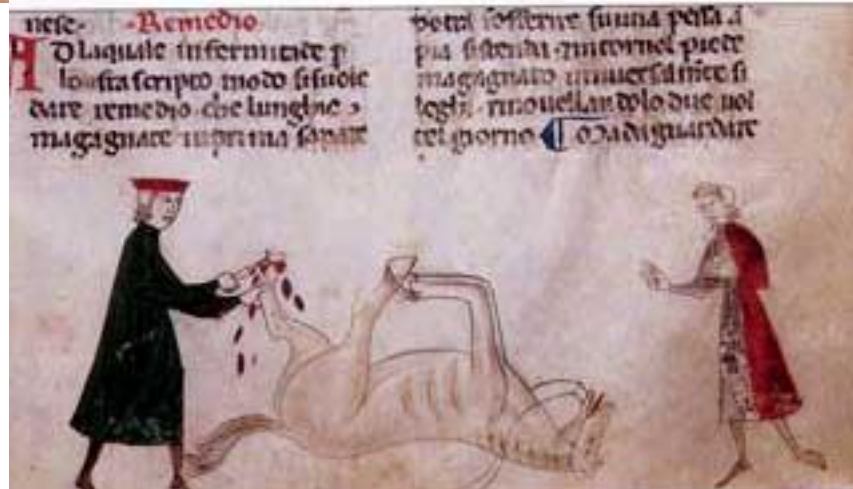 nese · Remedio
A D laquale infermitate p
lo ista scripto modo si suole
dare remedio · che lunghie
magagnate in prima sapare
potra sofferire su una pessa a
pia distenda · intorno el piede
magagnato
leghi · rinovellandolo due vol
tel giorno Ma da guardare